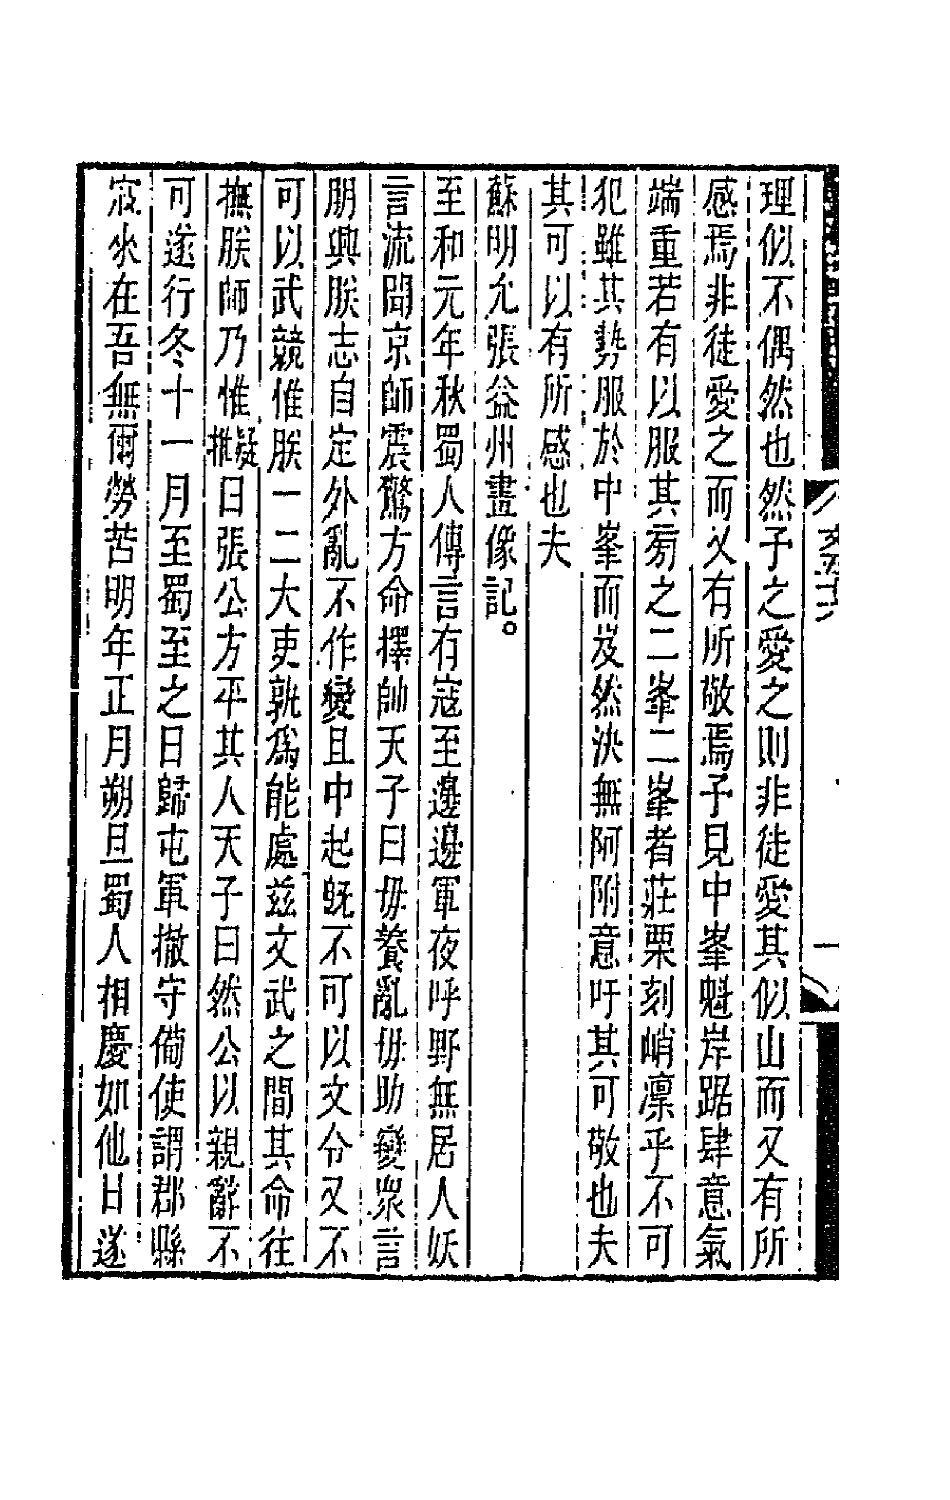 理似不偶然也然予之愛之則非徒愛其似山而又有所
感焉非徒愛之而又有所敬焉予見中峯魁岸踞肆意氣
端重若有以服其旁之二峯二峯者莊栗刻峭凛乎不可
犯雖其勢服於中峯而岌然決無阿附意吁其可敬也夫
其可以有所感也夫
蘇明允張益州畫像記。
至和元年秋蜀人傳言有寇至邊邊軍夜呼野無居人妖
言流聞京師震驚方命擇帥天子曰毋養亂毋助變衆言
朋興朕志自定外亂不作變且中起旣不可以文令又不
可以武競惟朕一二大吏孰爲能處兹文武之間其命往
撫朕師乃惟擬推曰張公方平其人天子曰然公以親辭不
可遂行冬十一月至蜀至之日歸屯軍撤守備使謂郡縣
寇來在吾無爾勞苦明年正月朔旦蜀人相慶如他日遂